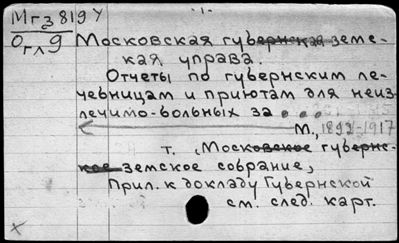 Мгз 819 у
Огл 9
- 1 -
Московская губернская земс-
кая управа.
Отчеты по губернским ле-
чебницам и приютам для неиз-
лечимо-больных за ...
М., 1892-1917
т. Московское губернс-
кое земское собрание,
Прил. к докладу Губернской
см. след. карт.